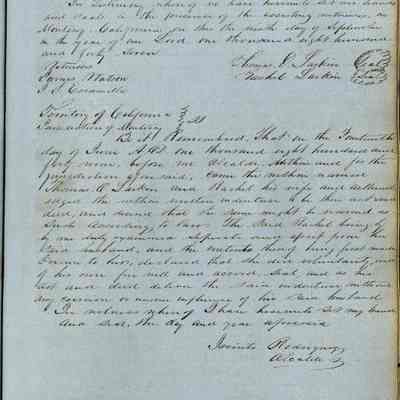 In Testimony where of we have hereunto set our hands
and seals in the presence of the
Monterey California on this the ninth day of September
in the year of our Lord one thousand eight hundred
and forty Seven
Witnesses Thomas O. Larkin Seal
James Watson Rachel Larkin Seal
Territory of California
Jurisdiction of Monterey SS
Be it Remembered, That on the
day of June A.D. one thousand eight hundred and
forty nine, before me Alcalde in and for the
jurisdiction aforesaid, Came the within named
Thomas O. Larkin and Rachel his wife and acknowl
edged the within written indenture to be their act and
deed, and desired that the same might be recorded as
Such According to law. The Said Rachel being
by me duly examined separate and apart from the
Said husband, and the contents thereof being first made
known to her, declared that she did voluntarily, and
of her own free will and accord, Seal and as her
act and deed deliver the Said indenture without
any coercion or undue influence of her Said husband
In witness whereof I have hereunto Set my hand
and Seal, the day and year aforesaid
Jacinto Rodriguez
Alcalde